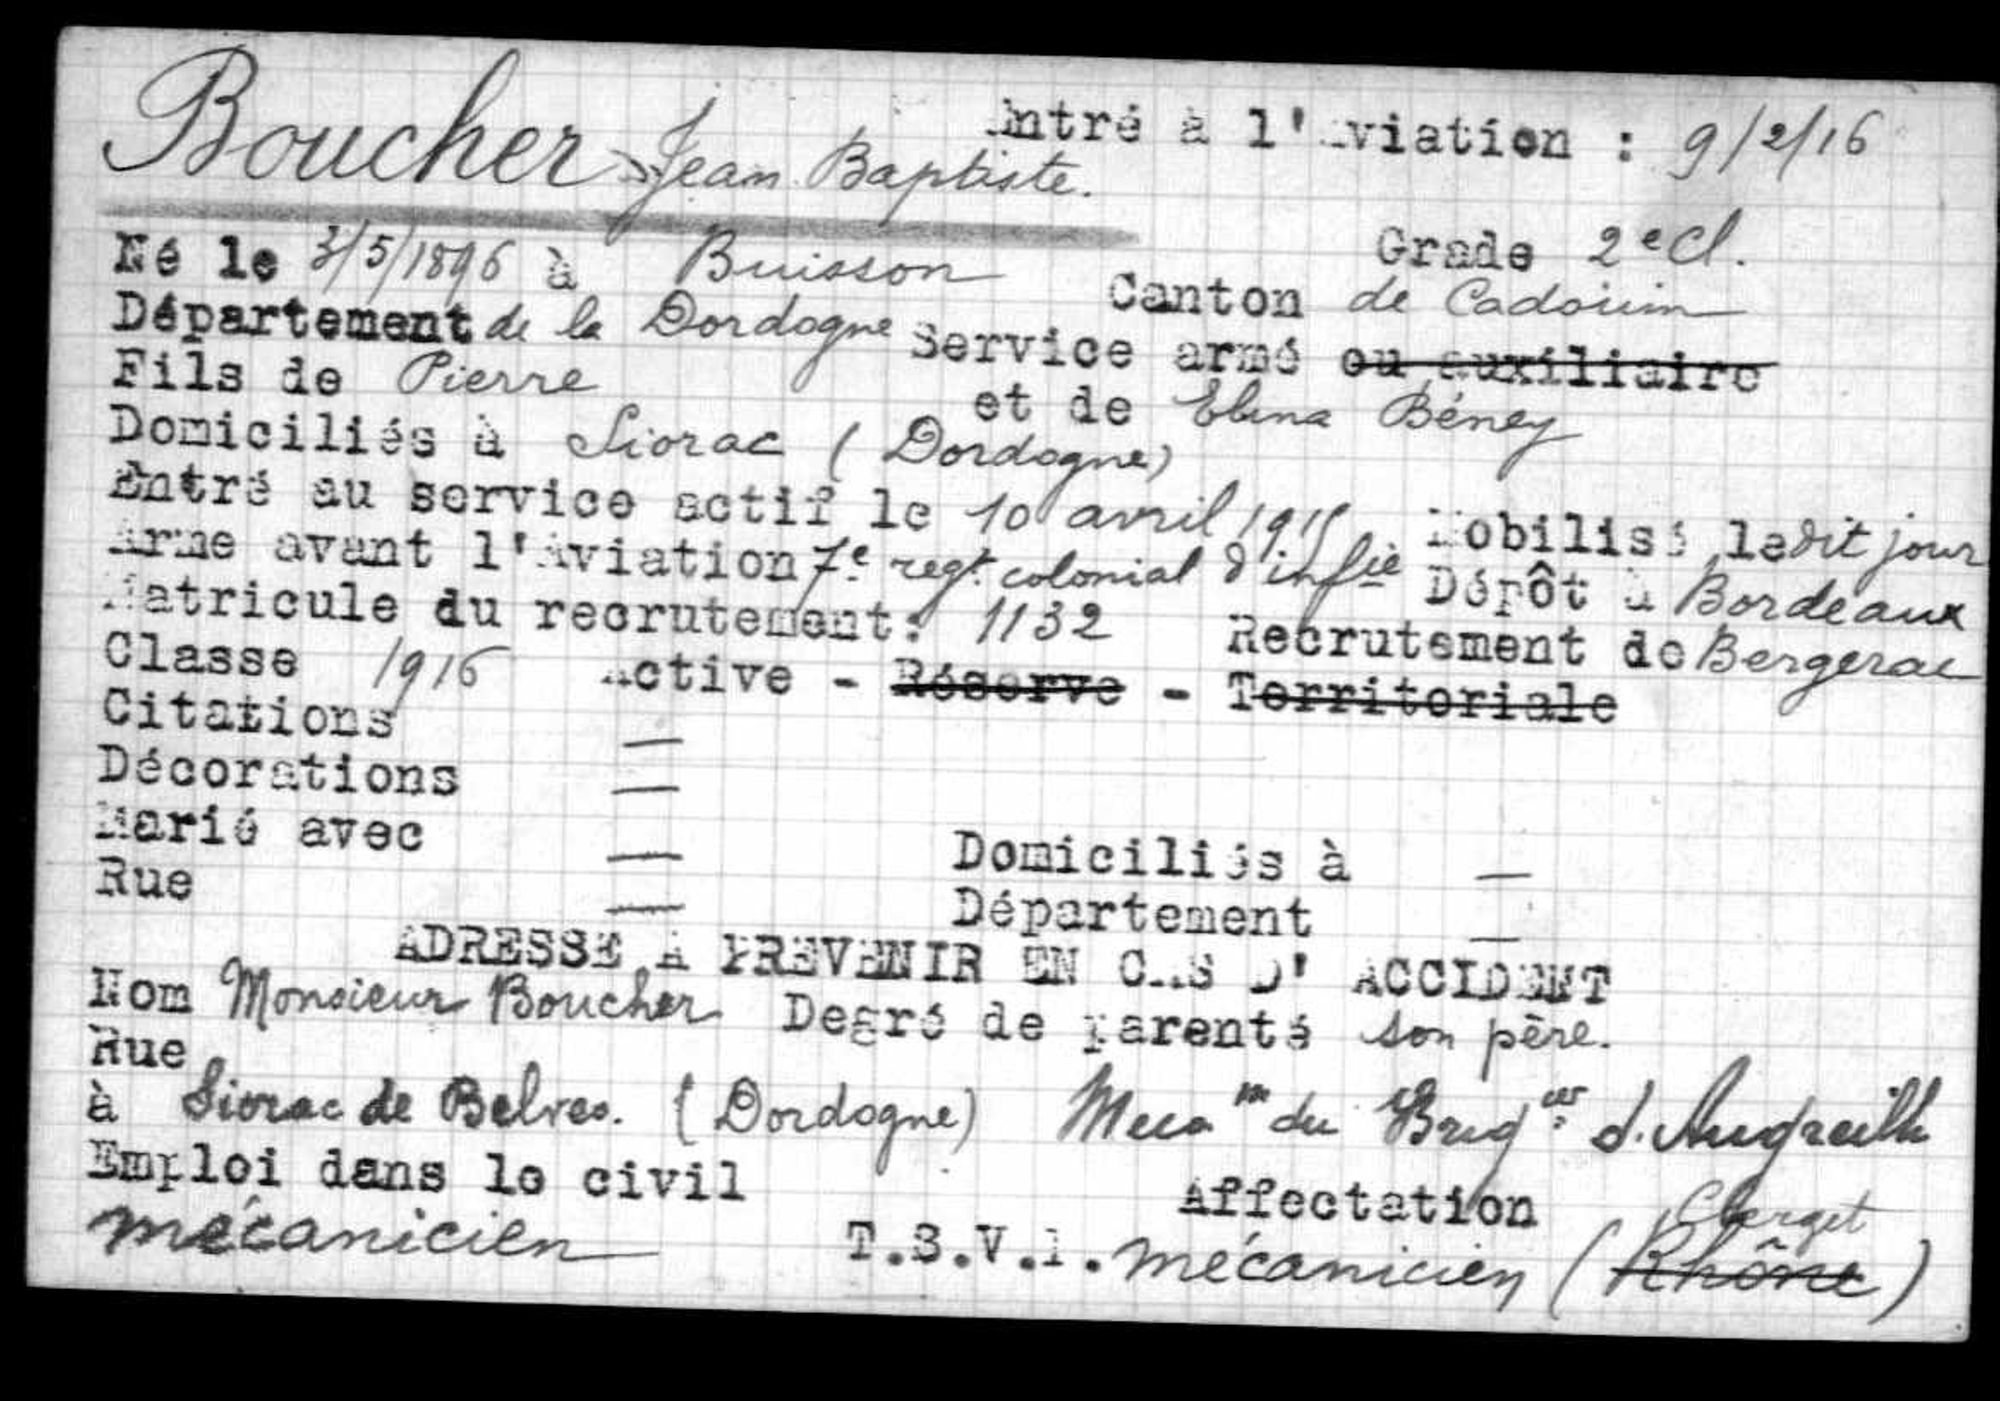 Boucher Jean Baptiste. Entré à l'Aviation : 9/2/16
Grade 2e Cl.
Né le 3/5/1896 à Buisson Canton de Cadouin
Département de la Dordogne Service armé ou auxiliaire
Fils de Pierre et de Elina Béney
Domiciliés à Siorac (Dordogne)
Entré au service actif le 10 avril 1915 Mobilisé le dit jour
Arme avant l'Aviation 7e regt. colonial d'infie Dépôt à Bordeaux
Matricule du recrutement: 1132 Recrutement de Bergerac
Classe 1916 Active - Réserve - Territoriale
Citations —
Décorations —
Marié avec — Domiciliés à —
Rue — Département —
ADRESSE A PREVENIR EN CAS D' ACCIDENT
Nom Monsieur Boucher Degré de parenté son père.
Rue
à Siorac de Belves. (Dordogne) Meca du Brig
Emploi dans le civil Affectation
mécanicien T.S.V.P. mécanicien (Rhône Clerget)